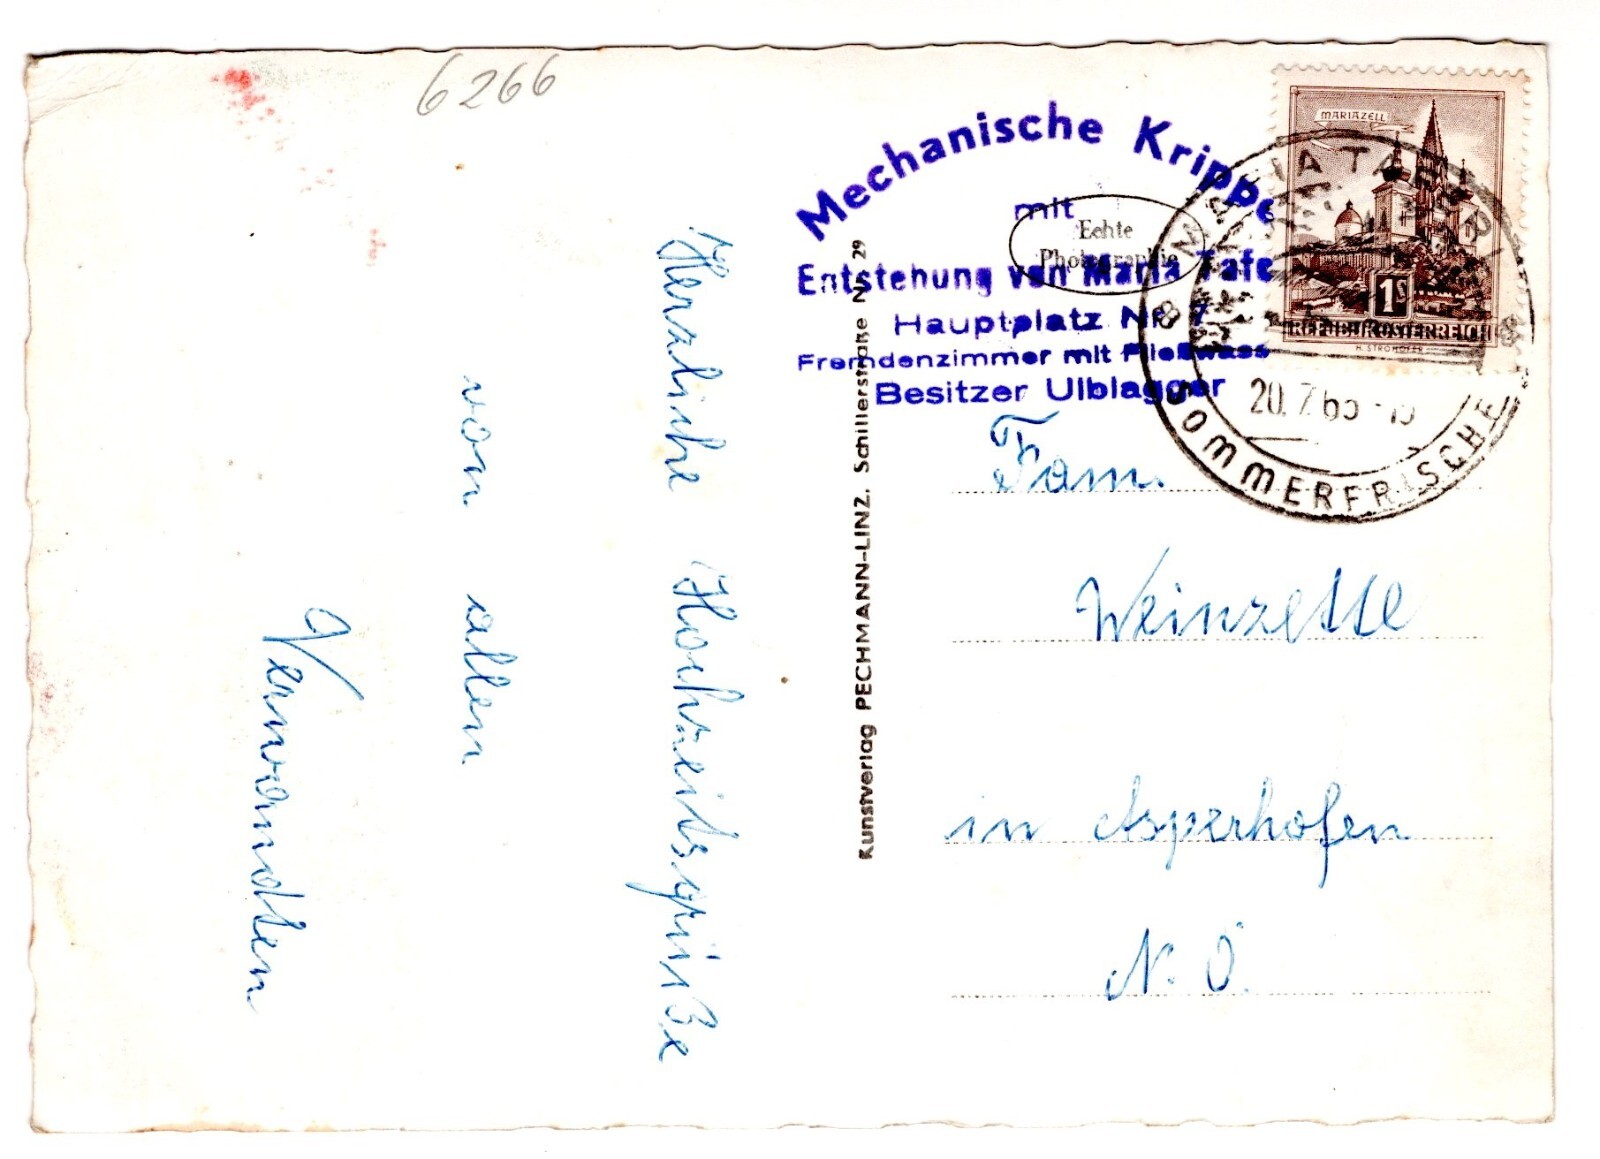 6266
Herzliche Hochzeitsgrüße
von allen
Verwandten
Kunstverlag PECHMANN-LINZ, Schillerstraße Nr. 29
Mechanische Krippe
mit
Echte
Photographie
Entstehung von Maria Tafe
Hauptplatz Nr. 7
Fremdenzimmer mit Fließwass
Besitzer Ulblagger
MARIAZELL
1S
REPUBLIK ÖSTERREICH
H. STROHOFER
MARIA TAFERL
20. 7. 65
SOMMERFRISCHE
Fam.
Weinzettl
in Asperhofen
N. Ö.